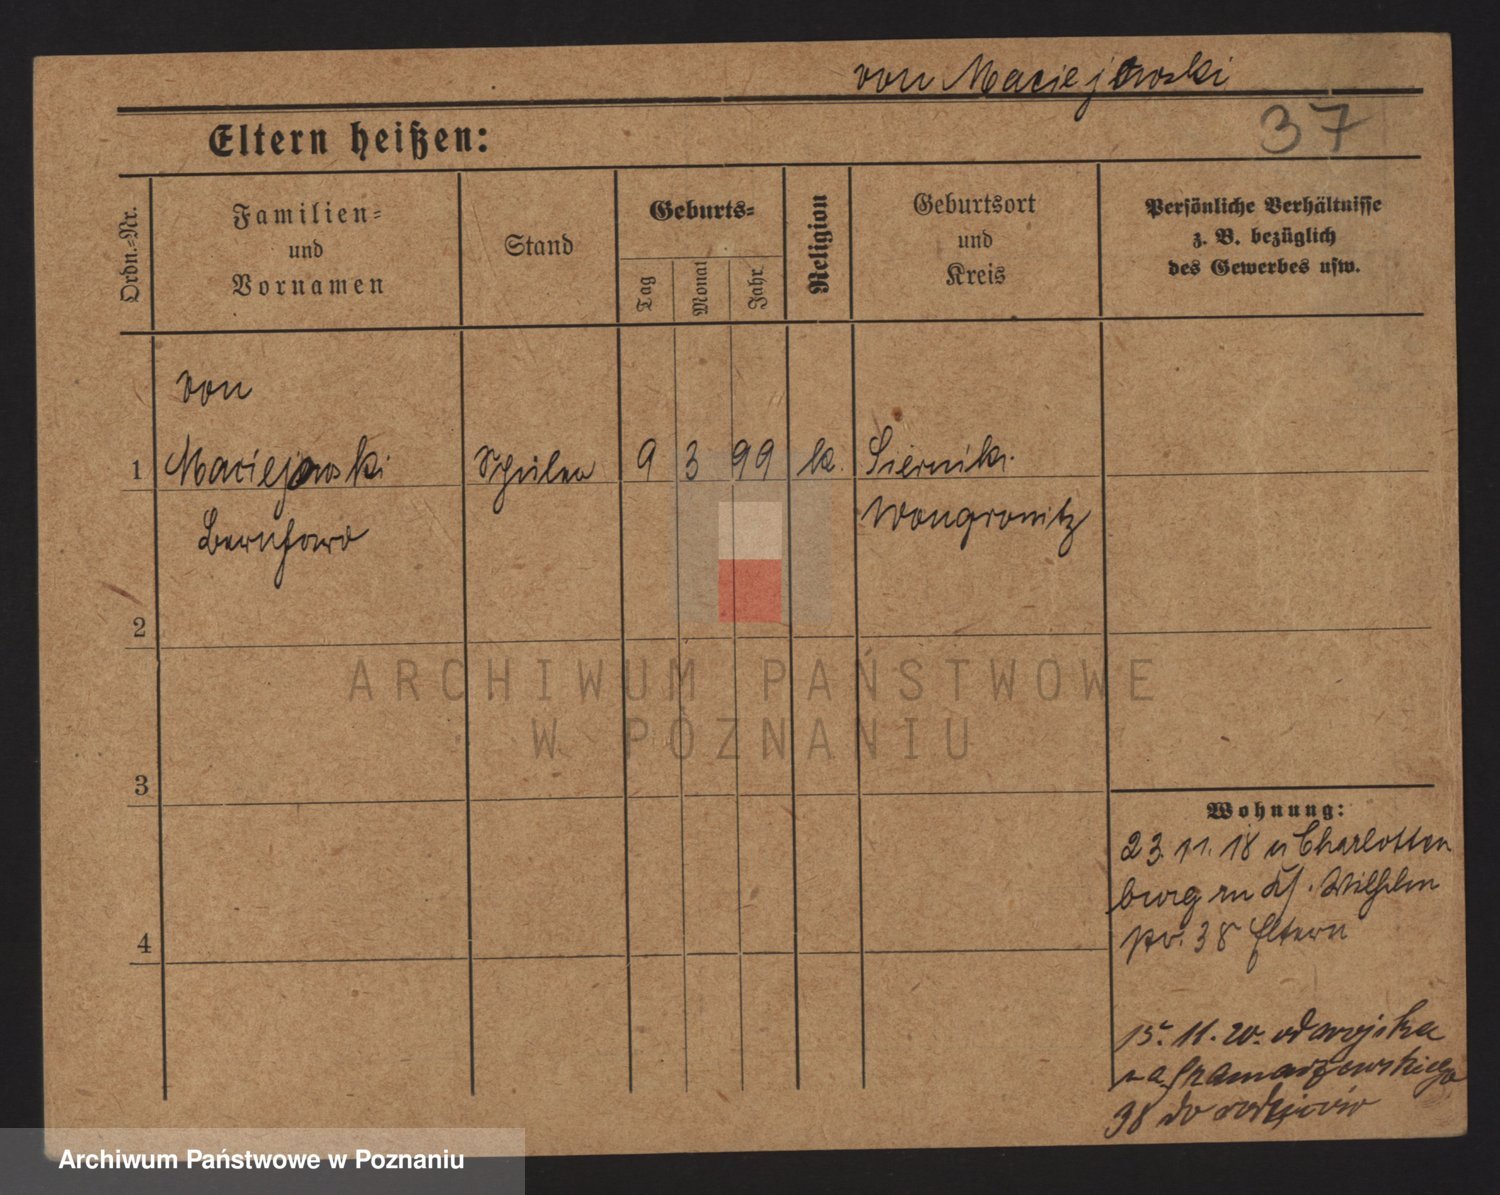 von Maciejowski
37
Eltern heißen:
Ordn.-Nr.
Familien-
und
Vornamen
Stand
Geburts-
Tag
Monat
Jahr
Religion
Geburtsort
und
Kreis
Persönliche Verhältnisse
z. B. bezüglich
des Gewerbes usw.
von
1 Maciejowski Schüler 9 3 99 k. Sierniki
Bernhard Wongrowitz
2
3
4
Wohnung:
23. 11. 18 n Charlotten
burg Wilhelm
38 Eltern
15. 11. 20. od wojska
na
38 do rodziców
ARCHIWUM PAŃSTWOWE
W POZNANIU
Archiwum Państwowe w Poznaniu